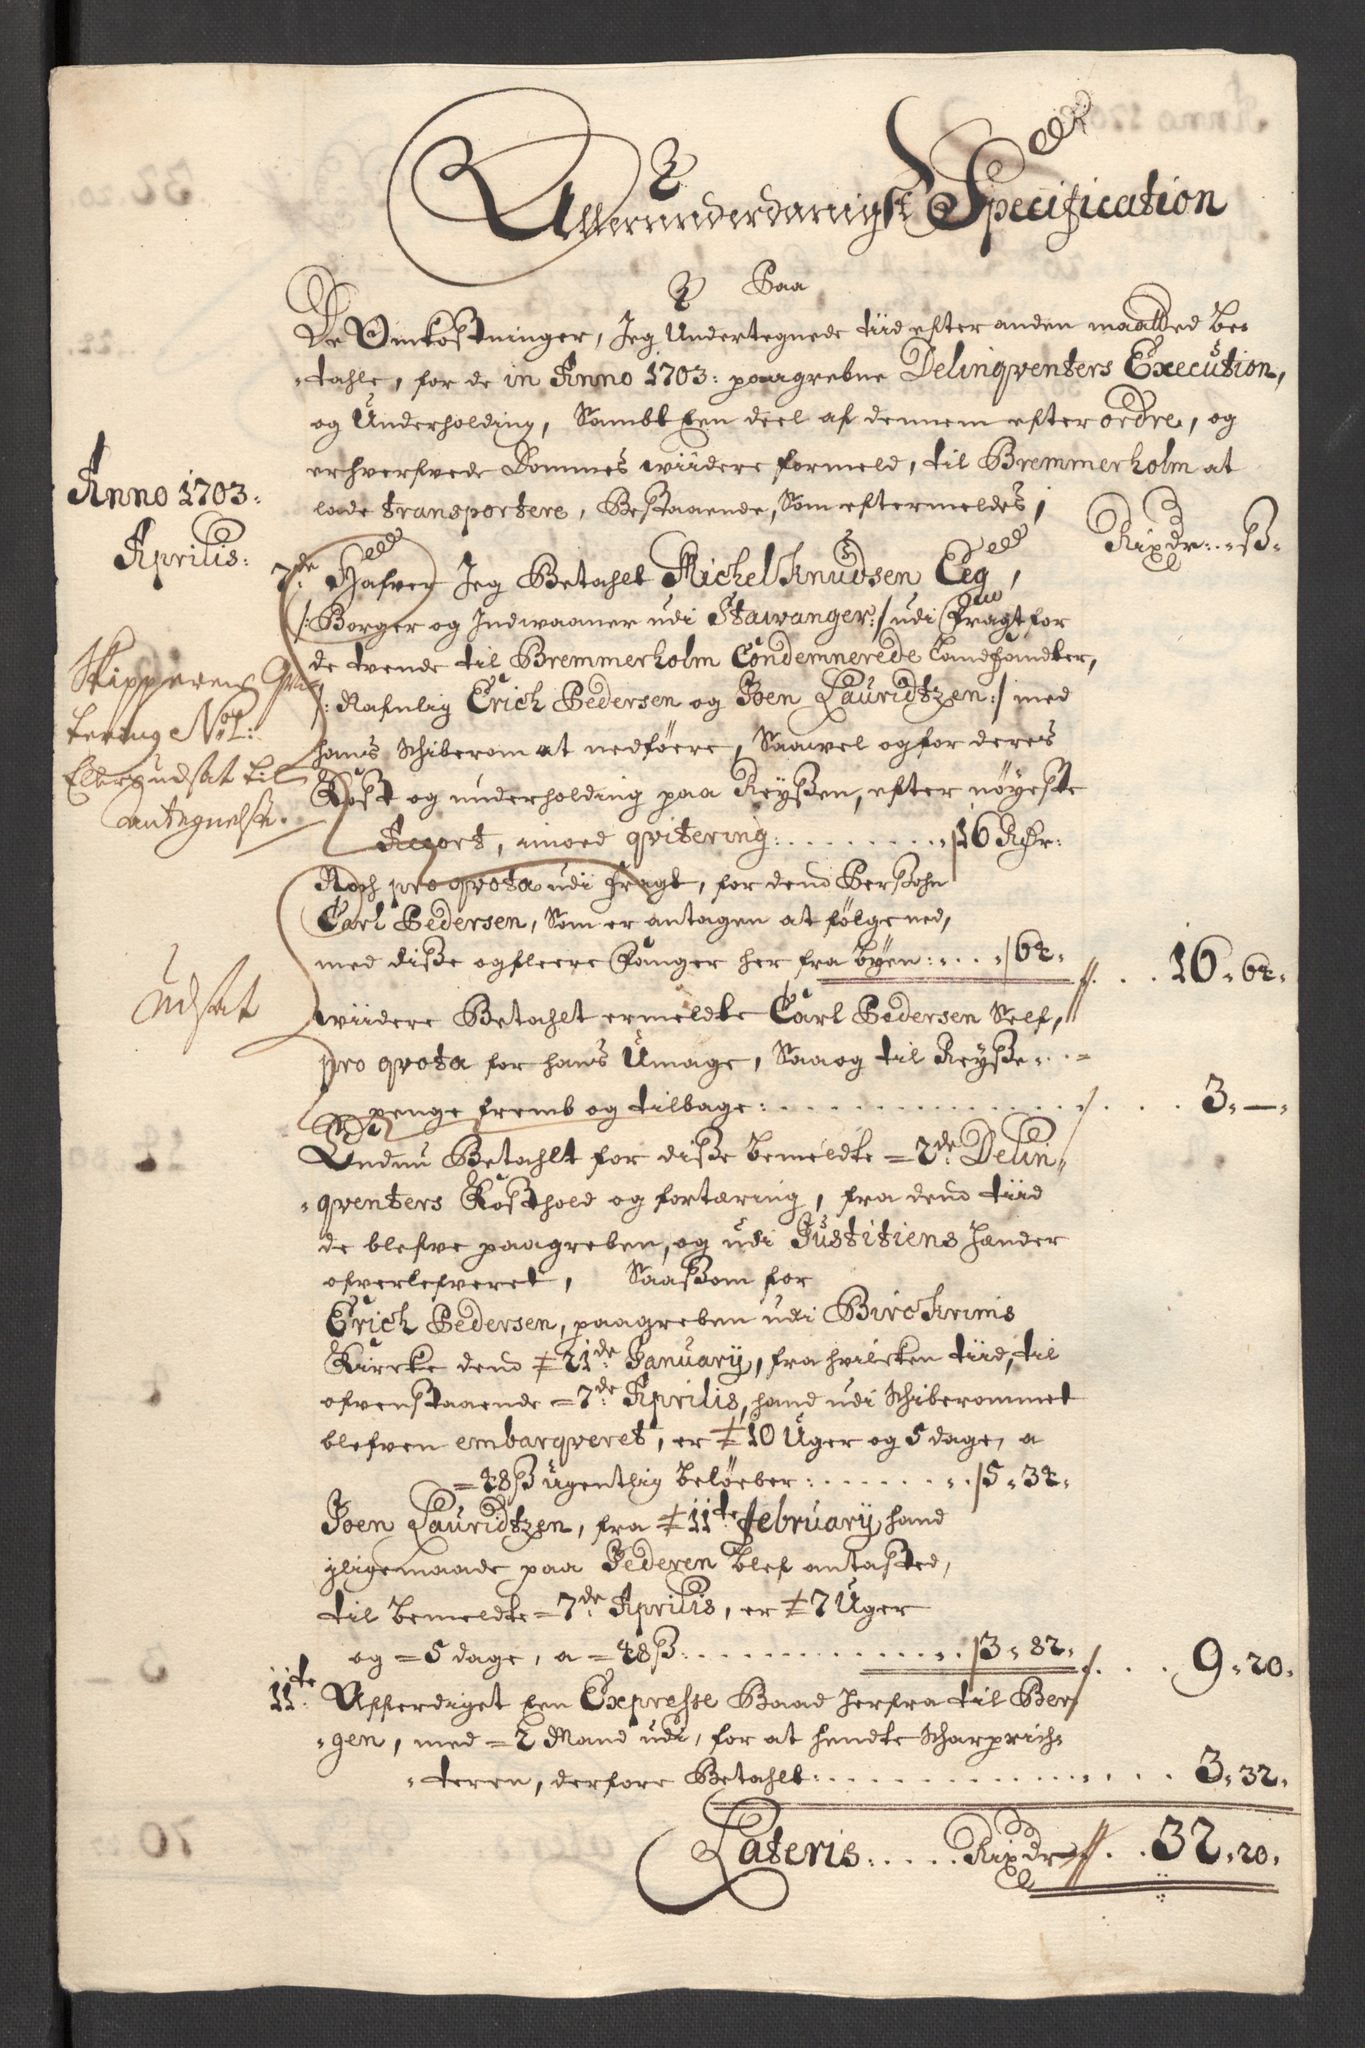 Allerunderdanigst Specification
Paa
De Omkostninger, Jeg Undertegnede tiid efter anden maatted be-
tahle, for de in Anno 1703: paagrebne Delinqventers Execution,
og Underholding, Sambt Een deel af dennem efter ordre, og
erhverfvede Dommes wiidere formeld, til Bremmerholm at
lade transportere, Bestaaende, Som eftermeldes,
Anno 1703:
Aprilis:
Rixdr: ß
7de: Hafver Jeg Betahlt Michel Knudsen Eeg,
/: Borger og Indwaaner udi Stawanger :/ udi Fragt for
de tvende til Bremmerholm Condemnerede Landhandler,
/: Nafnlig Erich Pedersen og Joen Lauridtzen :/ med
hans Schiberom at nedføere, Saavel og for deres
Kost og underholding paa Reyßen, efter nøyeste
Accort, imod qvitering: . . . . . . . . 16 Rdr:
Skipperens Qvi
tering No 1:
Ellers udsat til
antegnelse.
Noch pro qvota udi fragt, for dend Persohn
Carl Pedersen, Som er antagen at følge ned,
med diße og fleere Fanger her fra byen: . . . 64. . . . 16. 64.
Udsat
wiidere Betahlt ermeldte Carl Pedersen Self,
pro qvota for hans Umage, Saa og til Reyße-
penge fremb og tilbage: . . . . . . . . . . . . 3. —.
Endnu Betahlt for diße bemeldte 2de: Delin-
qventers Kosthold og fortæring, fra dend tiid
de blefve paagreben, og udi Justitiens Hænder
ofverlefveret, Saaßom for
Erich Pedersen, paagreben udi Birckrims
Kircke dend 21de January, fra hvilcken tiid, til
ofvenstaaende 7de: Aprilis, hand udi Schiberommet
blefven embarqveret, er 10 Uger og 5 dage, a
48 ß ugentlig beløeber: . . . . . . . 5. 34.
Joen Lauridtzen, fra 11te february hand
jligemaade paa Jederen blef antasted,
til bemeldte 7de: Aprilis, er 7 Uger
og 5 dage, a 48 ß: . . . . . . . . . . . 3. 82. . . . 9. 20.
11te: Afferdiget Een Expresse Baad herfra til Ber-
gen, med 2 Mand udi, for at hendte Scharprich-
teren, derfore Betahlt: . . . . . . . . . . . . . 3. 32.
Lateris: . . . . Rixdr . . 32. 20.